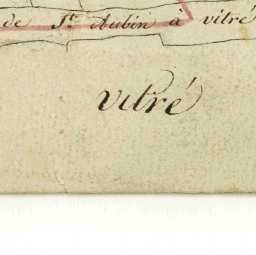 de St Aubin à vitré
vitré